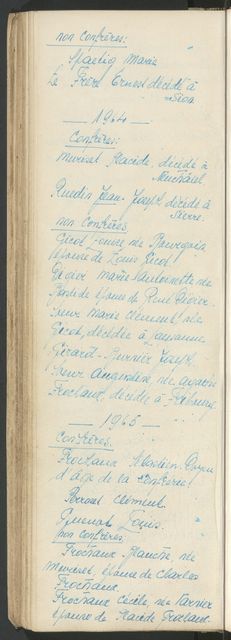 non confrères:
Spaetig Marie
Le Frère Ernest décédé à
Sion
— 1964 —
Confrères:
Murisat Placide décédé à
Neuchâtel
Ruedin Jean-Joseph décédé à
Sierre.
non confrères
Gicot Louise née Bourgoin
épouse de Louis Gicot
Digier Marie Antoinette née
épouse de Paul Digier.
Soeur Marie Clément, née
Gicot, décédée à Lausanne.
Girard-Murrier Joseph.
Soeur Augustine, née Agathe
Frochaux, décédée à Fribourg.
— 1965 —
Confrères.
Frochaux Sébastien. Doyen
d'âge de la confrérie
Perroset Clément.
Quenet Louis.
non confrères
Frochaux Blanche, née
Monneret, épouse de Charles
Frochaux.
Frochaux Cécile, née Varnier
épouse de Placide Frochaux.